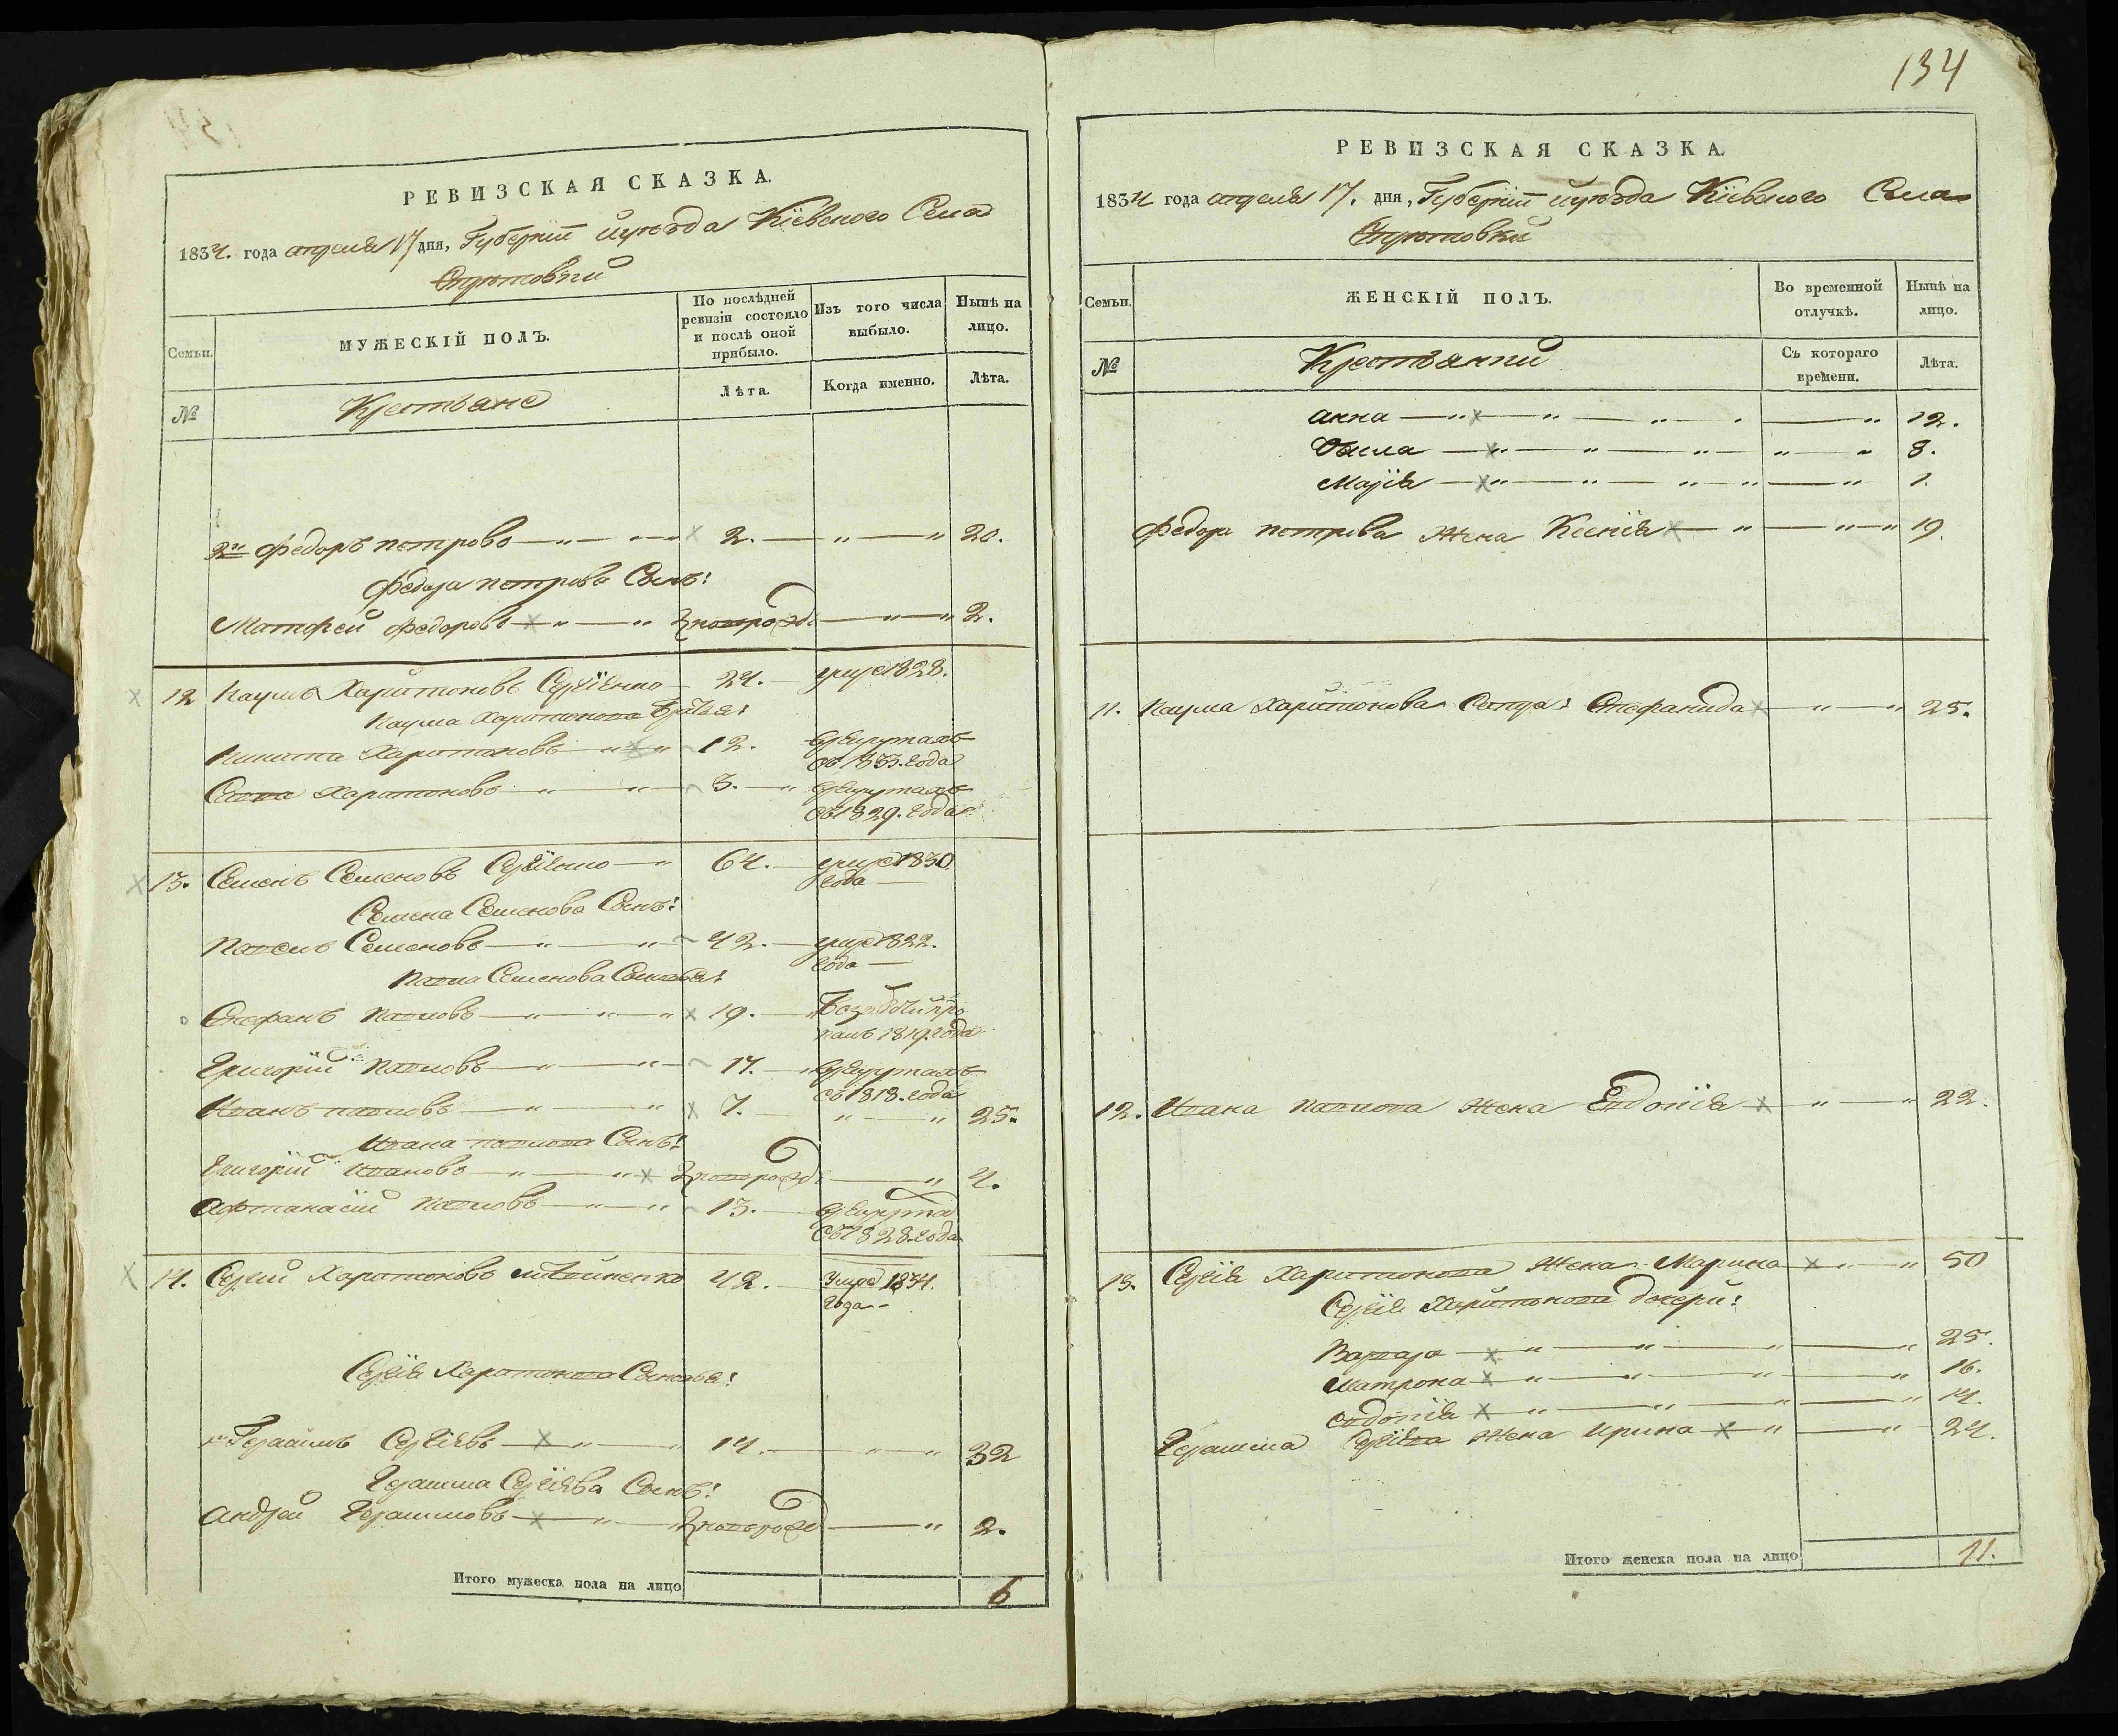 134
РЕВИЗСКАЯ СКАЗКА.
1834. года апреля 17 дня, Губернїи и уѣзда Кїевского Села
Семьи.
МУЖЕСКІЙ ПОЛЪ.
По послѣдней ревизіи состояло и послѣ оной прибыло.
Изъ того числа выбыло.
Нынѣ на лицо.
№
Крестьяне
Лѣта.
Когда именно.
Лѣта.
2й Федоръ Петровъ — " — " — 2. — " — " 20.
Федора Петрова Сынъ:
Матфей Федоровъ — " — " новорожд — " — " 2.
12 Наумъ Харитоновъ Сергїенко 24. умре 1828.
Наума Харитонова Братья:
Никита Харитоновъ — " — " 12. — въ рекрутахъ
съ 1833. года
Савва Харитоновъ — " — " 3. — " въ рекрутахъ
съ 1829. года
13. Семенъ Семеновъ Сергїенко — " 64. — умре 1830
года —
Семена Семенова Сынъ:
Павелъ Семеновъ — " — " 42. — умре 1822.
года —
Павла Семенова Сыновья:
Стефанъ Павловъ — " — " — " 19. — Безъ вѣсти про
палъ 1819. года
Григорїй Павловъ — " — " 17. — " въ рекрутахъ
съ 1818. года
Иванъ Павловъ — " — " 7. — " — " 25.
Ивана Павлова Сынъ:
Григорїй Ивановъ — " — " новорожд — " 4.
Афтанасїй Павловъ — " — " 13. — въ рекрута
съ 1828. года
14. Сергїй Харитоновъ 42. — Умре 1831.
года —
Сергїя Харитонова Сыновья:
1й Герасимъ Сергїевъ — " — " 14. — " — " 32
Герасима Сергїева Сынъ:
Андрей Герасимовъ — " — " новорожд — " 2.
Итого мужеска пола на лицо
6
РЕВИЗСКАЯ СКАЗКА.
1834 года апреля 17. дня, Губернїи и уѣзда Кїевского Села
Семьи.
ЖЕНСКІЙ ПОЛЪ.
Во временной отлучкѣ.
Нынѣ на лицо.
№
Крестьянки
Съ котораго времени.
Лѣта.
Анна — " — " — " — " 12.
— " — " — " — " — " 8.
Марїя — " — " — " — " — " 1.
Федора Петрова Жена Ксенїя — " — " — " 19.
11. Наума Харитонова Сестра: Стефанида — " — " 25.
12. Ивана Павлова Жена Евдокїя — " — " 22.
13. Сергїя Харитонова Жена Марина — " — " 50
Сергїя Харитонова дочери:
Варвара — " — " — " — " 25.
Матрона — " — " — " — " 16.
Евдокїя — " — " — " — " 14.
Герасима Сергїева Жена Ирина — " — " 24.
Итого женска пола на лицо
11.